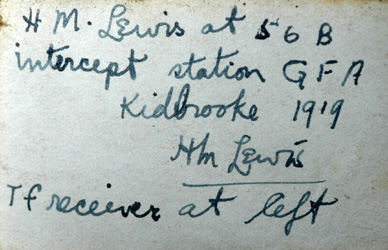 H M. Lewis at 56 B
intercept station GFA
Kidbrooke 1919
HM Lewis
Tf receiver at left